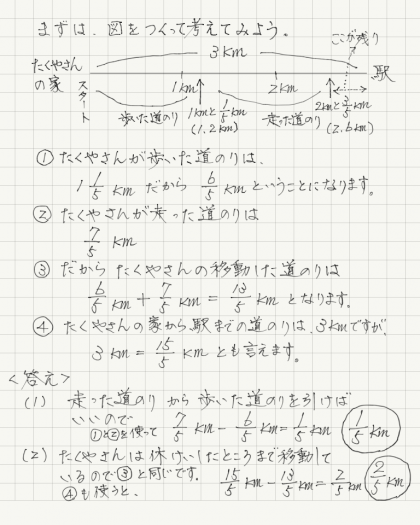 まずは、図をつくって考えてみよう。
ここが残り
3km
たくやさんの家
スタート
1km
2km
駅
歩いた道のり
1kmと1/5km
(1.2km)
走った道のり
2kmと3/5km
(2.6km)
① たくやさんが歩いた道のりは、
1 1/5 km だから 6/5 kmということになります。
② たくやさんが走った道のりは
7/5 km
③ だから たくやさんの移動した道のりは
6/5 km + 7/5 km = 13/5 km となります。
④ たくやさんの家から駅までの道のりは、3kmですが、
3 km = 15/5 km とも言えます。
<答え>
(1) 走った道のりから歩いた道のりを引けば
いいので
①と②を使って 7/5 km - 6/5 km = 1/5 km 1/5 km
(2) たくやさんは休けいしたところまで移動して
いるので③と同じです。
④も使うと、 15/5 km - 13/5 km = 2/5 km 2/5 km